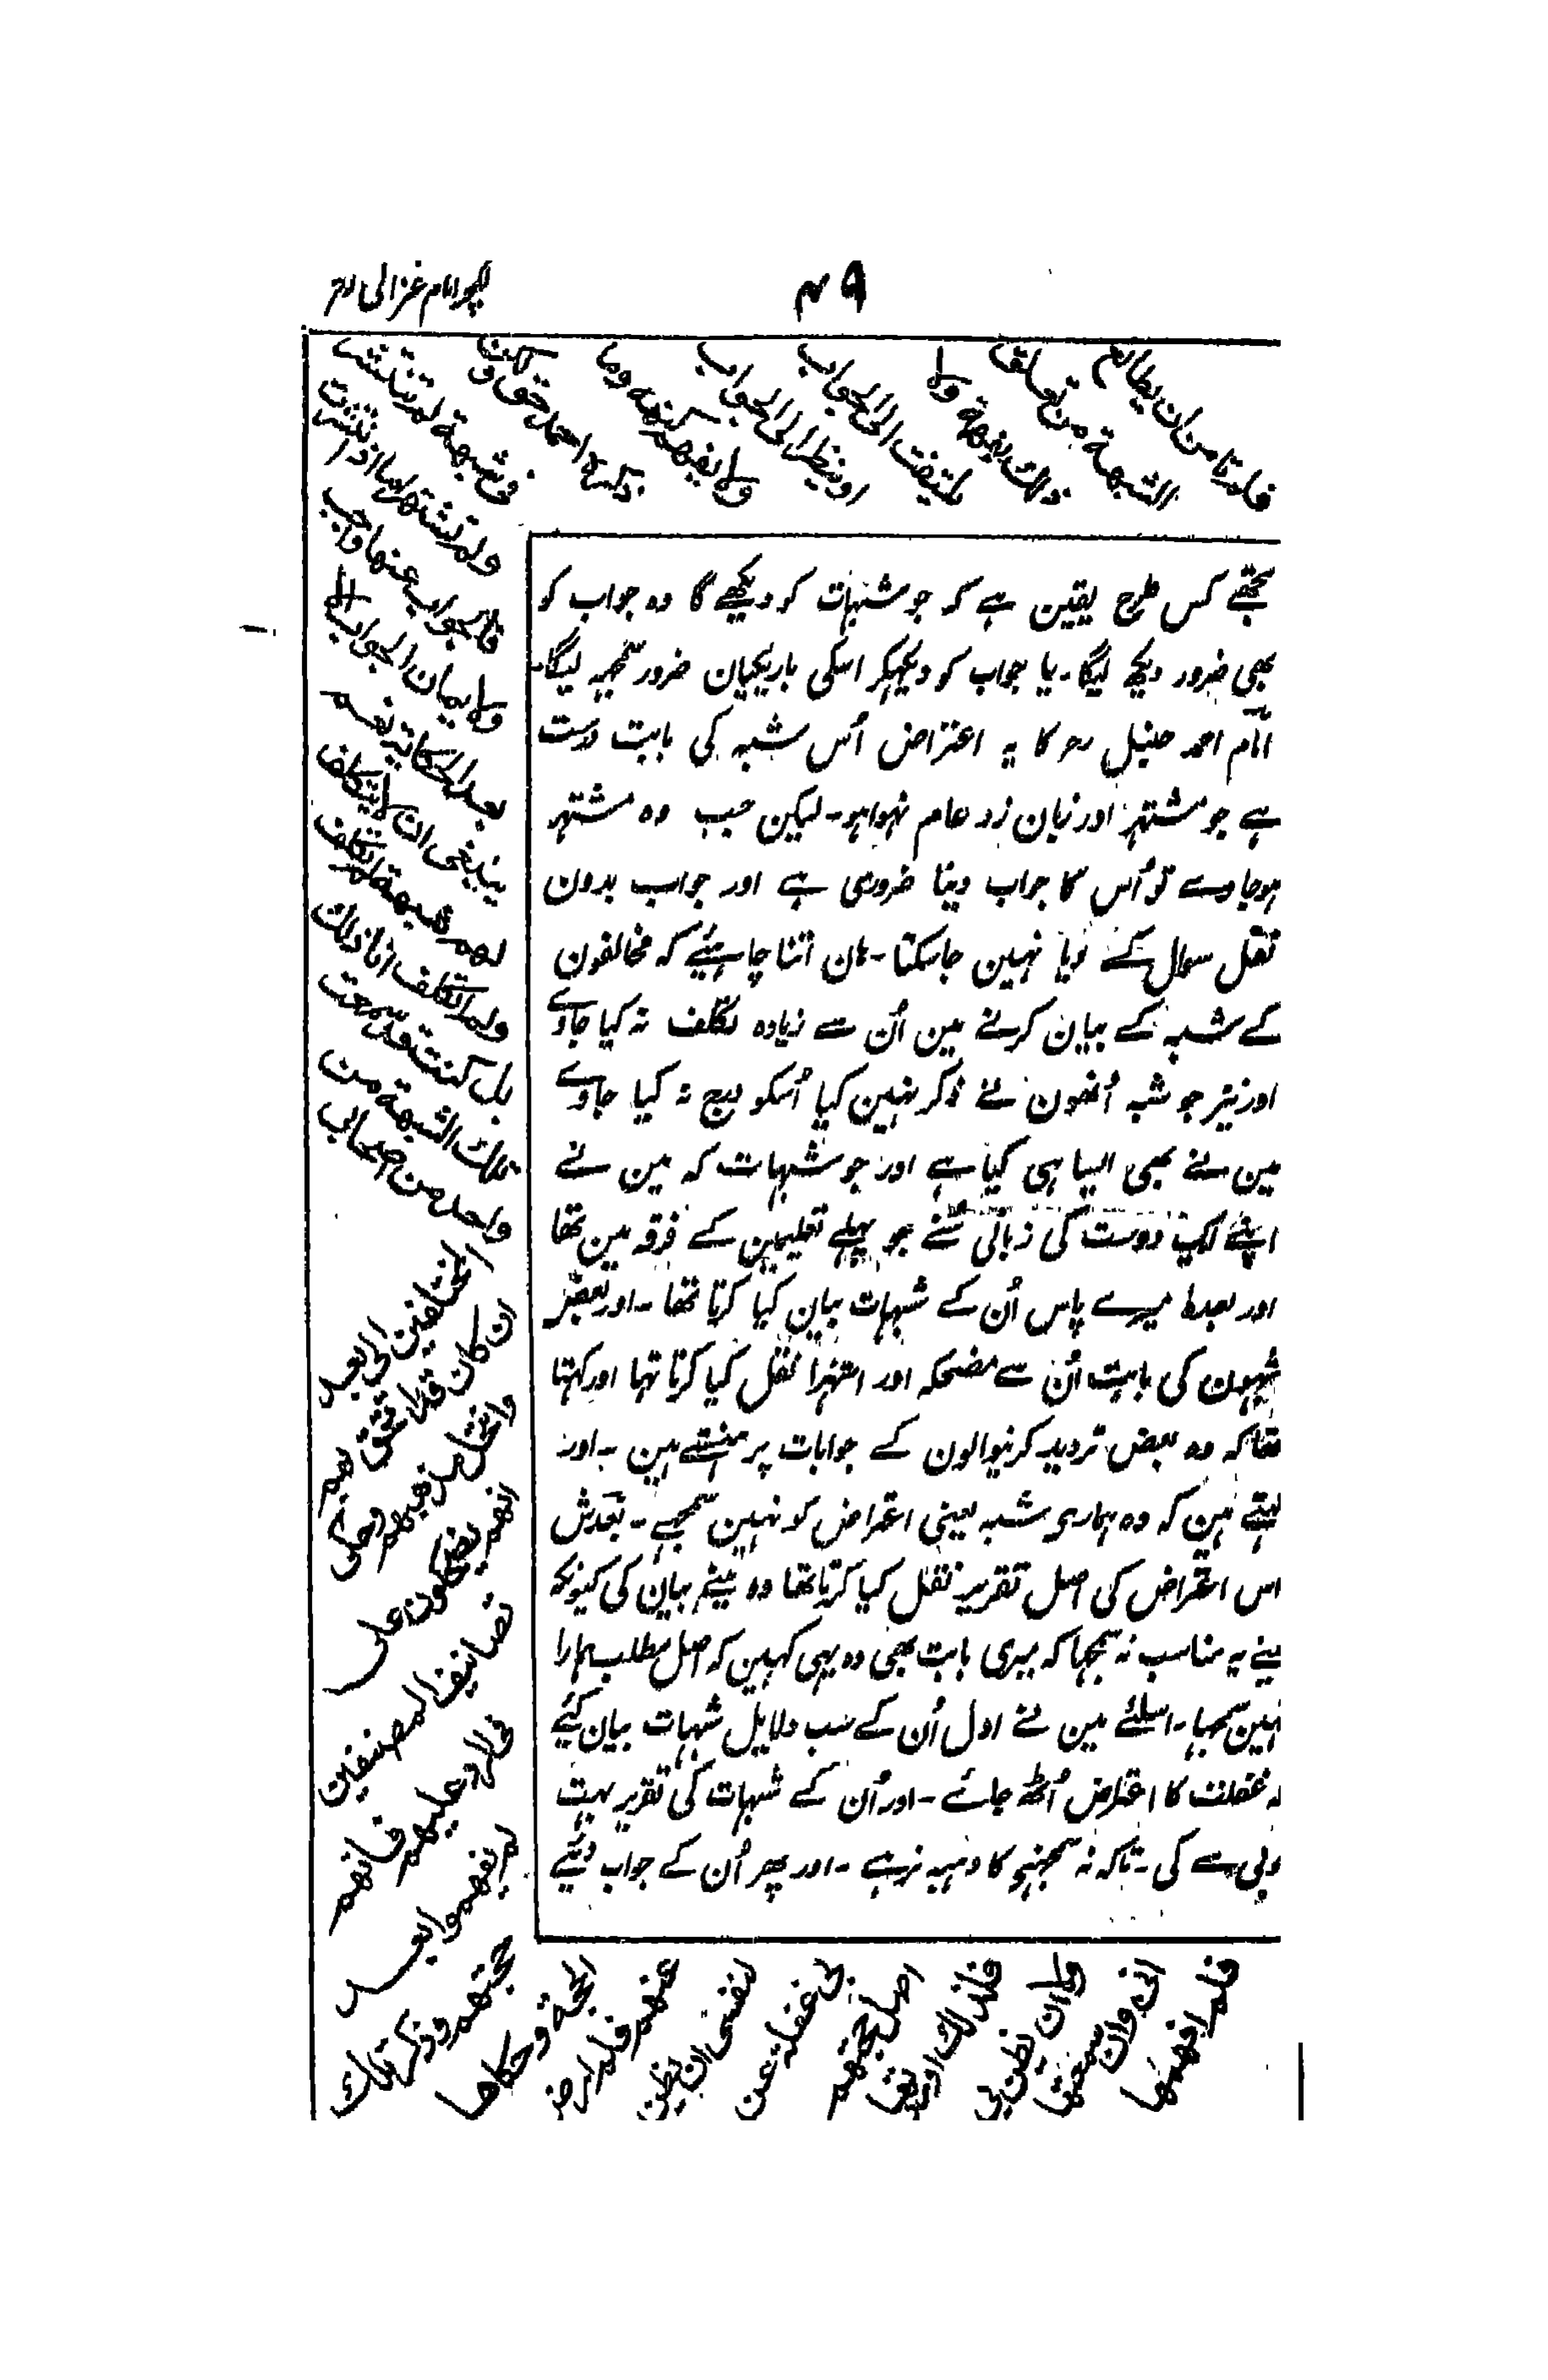 ۴۹
لکچر امام غزالی رح
فلا تامن ان يطالع
الشبهة من تعلق
ذلك بفهمه ولا
يلتفت الى الجواب
او ينظر الى الجواب
ولا يفهم كنهه وما
ذكره احمد حق ولكن
فى شبهة لم تنتشر
ولم تشتهر اما اذا انتشرت
فالجواب عنها واجب
ولا يمكن الجواب الا
بعد الحكاية نعم
ينبغى ان لا يتكلف
لهم شبهة لم تكلف
ولم اتكلف انا ذلك
بل كنت قد سمعت
تلك الشبهة من
واحد من اصحابى
المختلفين الى بعد
ان كان قد التحق بهم
وانتحل مذهبهم وحكى
انهم يضحكون على
تصانيف المصنفين
فى الرد عليهم فانهم
لم يفهموا بعد
حجتهم وذكر تلك
الحجة وحكاها
عنهم فلم ارض
لنفسى ان يظن
بى الغفلة عن
اصل حجتهم
فلذلك اوردتها
ولا ان يظن بى
انى وان سمعتها
فلم افهمها
تجھے کس طرح یقین ہے کہ جو شبہات کو دیکھے گا وہ جواب کو
بھی ضرور دیکھ لیگا۔ یا جواب کو دیکھکر اسکی باریکیان ضرور سمجھہ لیگا۔
امام احمد حنبل رحمہ کا یہ اعتراض اُس شبہ کی بابت درست
ہے جو مشتہر اور زبان زد عام نہوا ہو۔ لیکن جب وہ مشتہر
ہوجاوے تو اُس کا جواب دینا ضروری ہے اور جواب بدون
نقل سوال کے دیا نہین جاسکتا۔ ہان اتنا چاہیئے کہ مخالفون
کے شبہ کے بیان کرنے مین اُن سے زیادہ تکلف نہ کیا جاوے
اور نیز جو شبہ اُنھون نے ذکر نہین کیا اُسکو درج نہ کیا جاوے
مین نے بھی ایسا ہی کیا ہے اور جو شبہات کہ مین نے
اپنے ایک دوست کی زبانی سنے جو پہلے تعلیمین کے فرقہ مین تھا
اور بعدہا میرے پاس اُن کے شبہات بیان کیا کرتا تھا۔ اور بعض
شبہون کی بابت اُن سے مضحکہ اور استہزا نقل کیا کرتا تہا اور کہتا
تھا کہ وہ بعض تردید کرنیوالون کے جوابات پر ہنستے ہین۔ اور
کہتے ہین کہ وہ ہماری شبہ یعنی اعتراض کو نہین سمجھے۔ بعدش
اس اعتراض کی اصل تقریر نقل کیا کرتا تھا وہ مینے بیان کی کیونکہ
مینے یہ مناسب نہ سمجہا کہ میری بابت بھی وہ یہی کہین کہ اصل مطلب ہمارا
نہین سمجہا۔ اسلئے مین نے اول اُن کے سب دلایل شبہات بیان کیئے
کہ غفلت کا اعتراض اُٹھ جائے۔ اور اُن کے شبہات کی تقریر بہت
خوبی سے کی۔ تاکہ نہ سمجہنے کا دہبہ نرہے۔ اور پھر اُن کے جواب دیئے